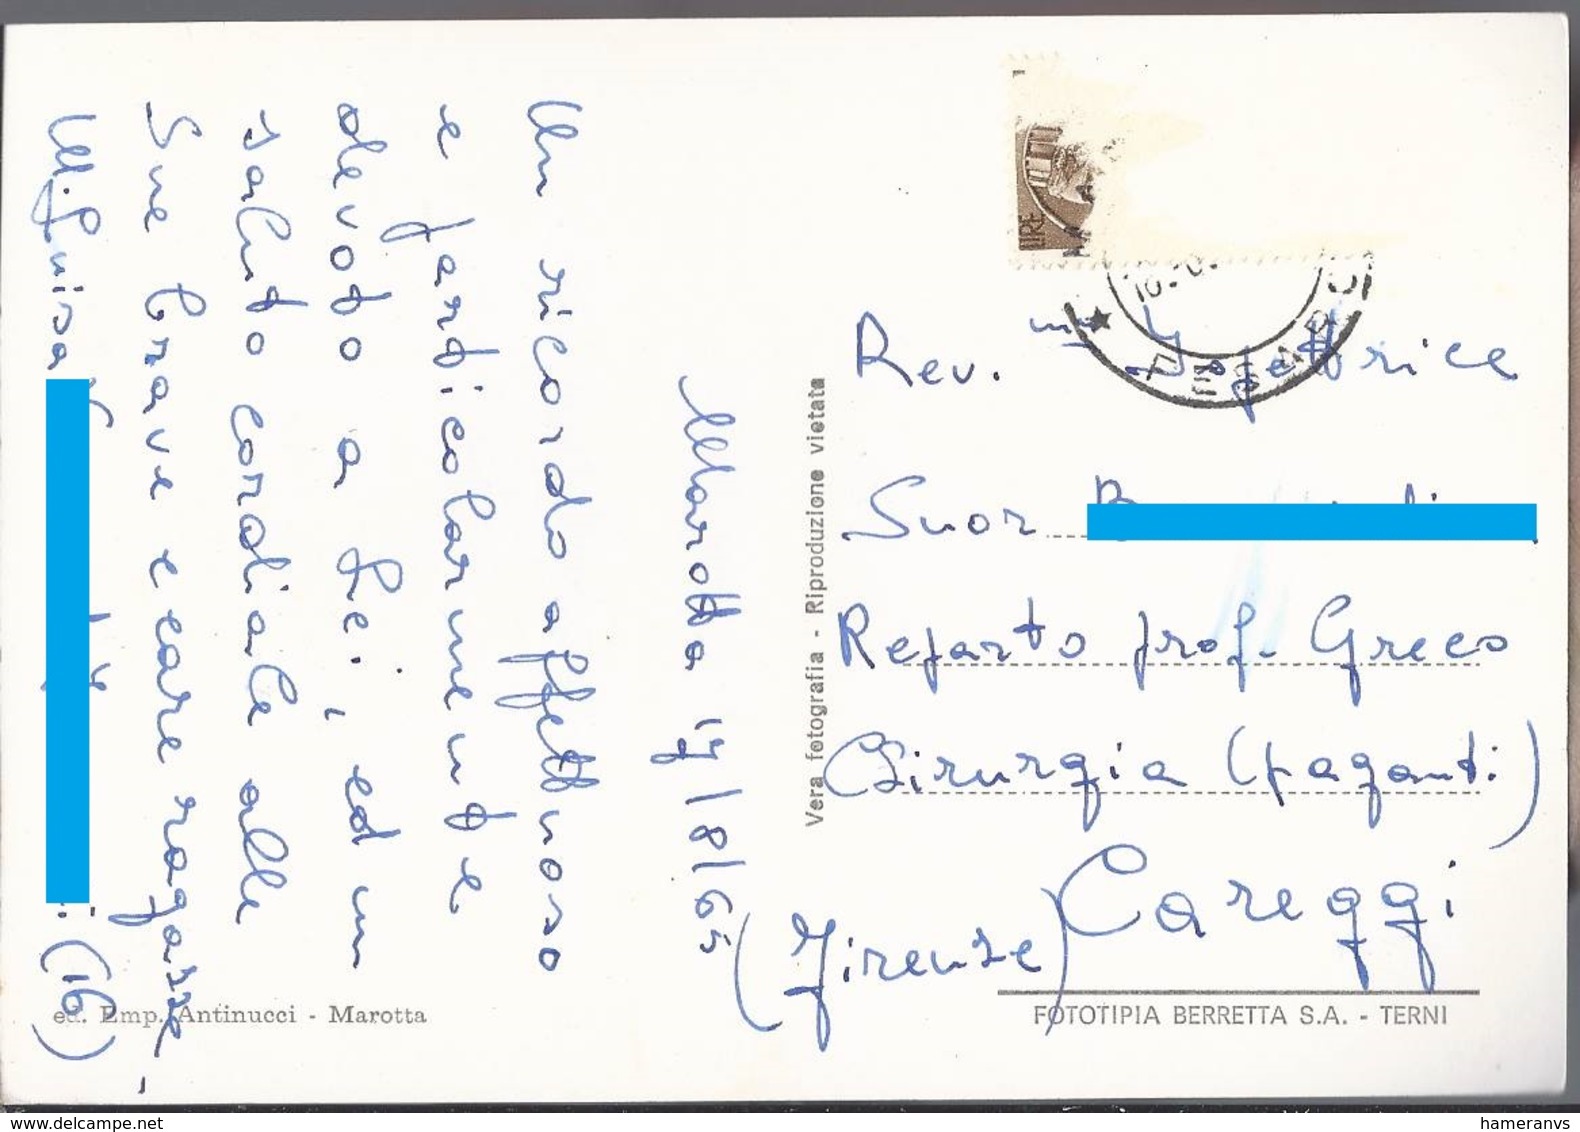 Marotta 17/8/65
Un ricordo affettuoso
e particolarmente
devoto a Lei, ed un
saluto cordiale alle
Sue brave e care ragazze -
M. Luisa
(16)
ed. Emp. Antinucci - Marotta
Vera fotografia - Riproduzione vietata
LIRE
Rev. ma Ispettrice
Suor
Reparto prof. Greco
Chirurgia (paganti)
Careggi
(Firenze)
FOTOTIPIA BERRETTA S.A. - TERNI
www.delcampe.net
hameranvs